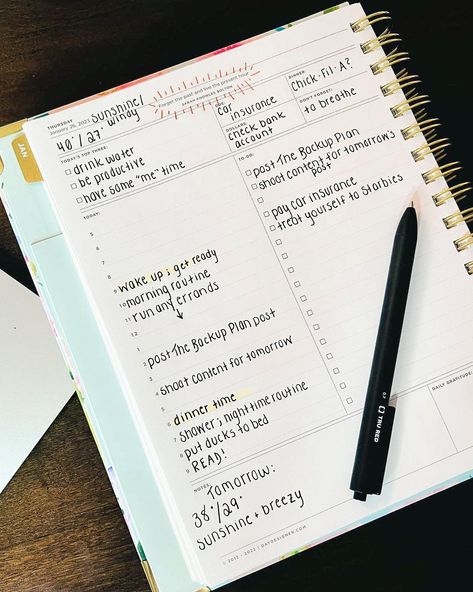 JAN
THURSDAY
January 26, 2023
sunshine/
windy
40°/27°
Forget the past and live the present hour.
SARAH KNOWLES BOLTON
DUE:
car
insurance
DOLLARS:
check bank
account
DINNER:
chick-fil-A?
DON'T FORGET:
to breathe
TODAY'S TOP THREE:
drink water
be productive
have some "me" time
TO-DO:
post The Backup Plan
shoot content for tomorrow's
post
pay car insurance
treat yourself to Starbies
TODAY:
5
6
7
8
9 wake up ; get ready
10 morning routine
11 run any errands
12
1
2 post The Backup Plan post
3
4 shoot content for tomorrow
5
6 dinner time
7 shower ; nighttime routine
8 put ducks to bed
9 READ!
DAILY GRATITUDE:
NOTES:
Tomorrow:
38°/29°
sunshine + breezy
TRU RED
0.7